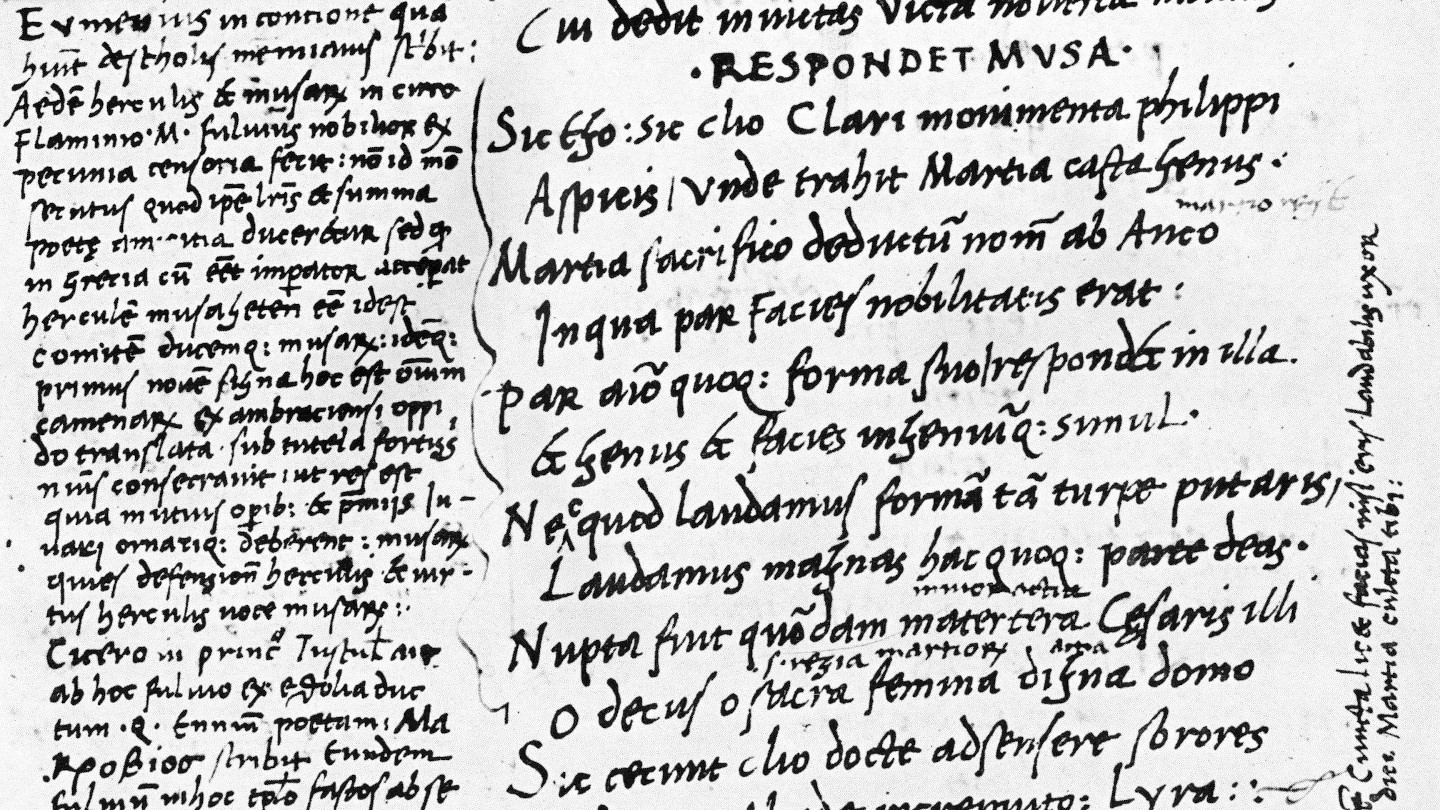 Eumenius in contione qua
hūit de scholis menianis scribit:
Aedē herculis & musarꝝ in circo
Flaminio·M· fulvius nobilior ex
pecunia censoria fecit: nō id mō
secutus quod ip̄e lr̄is & summa
poetę amicitia duceretur sed ꝙ
in grecia cū eēt imperator acceperat
herculē musageten eē idest
comitē ducemq: musarꝝ: idēq:
primus novē signa hoc est oīum
camenarꝝ ex ambraciensi oppi
do translata sub tutela fortiss
nūīs consecravit ut res est
quia mutuis operib: & p̄mijs Iu-
vari ornariq: deberent: musarꝝ
quies defension̄ herculis & vir-
tus herculis voce musarꝝ:·
Cicero in princ̊ Tuscul ait
ab hoc fulvio ex etolia duc
tum ·Q· Ennium poetam: Ma
scribit eundem
fulvium in hoc tēplo fastos ab se
Cui dedit invictas victa noverca manus
·RESPONDET MVSA·
Sic ego: sic clio Clari monimenta philippi
Aspicis / Unde trahit Martia casta genus:
Martia sacrifico deductū nom̄ ab Anco
In qua par Facies nobilitatis erat:
Par aīo quoq: forma suo / respondet in illa.
& genus & facies ingeniūq: simul·
Nec quod laudamus formā tā turpe putaris /
Laudamus magnas hac quoq: parte deas·
Nupta fuit quōdam matertera Cęsaris illi
s· regia martiorꝝ
O decus o sacra femina digna domo
Sic cecinit clio docte adsensere sorores
Lyra::
Cuncta licet facias nisi eris Laudabilis uxor